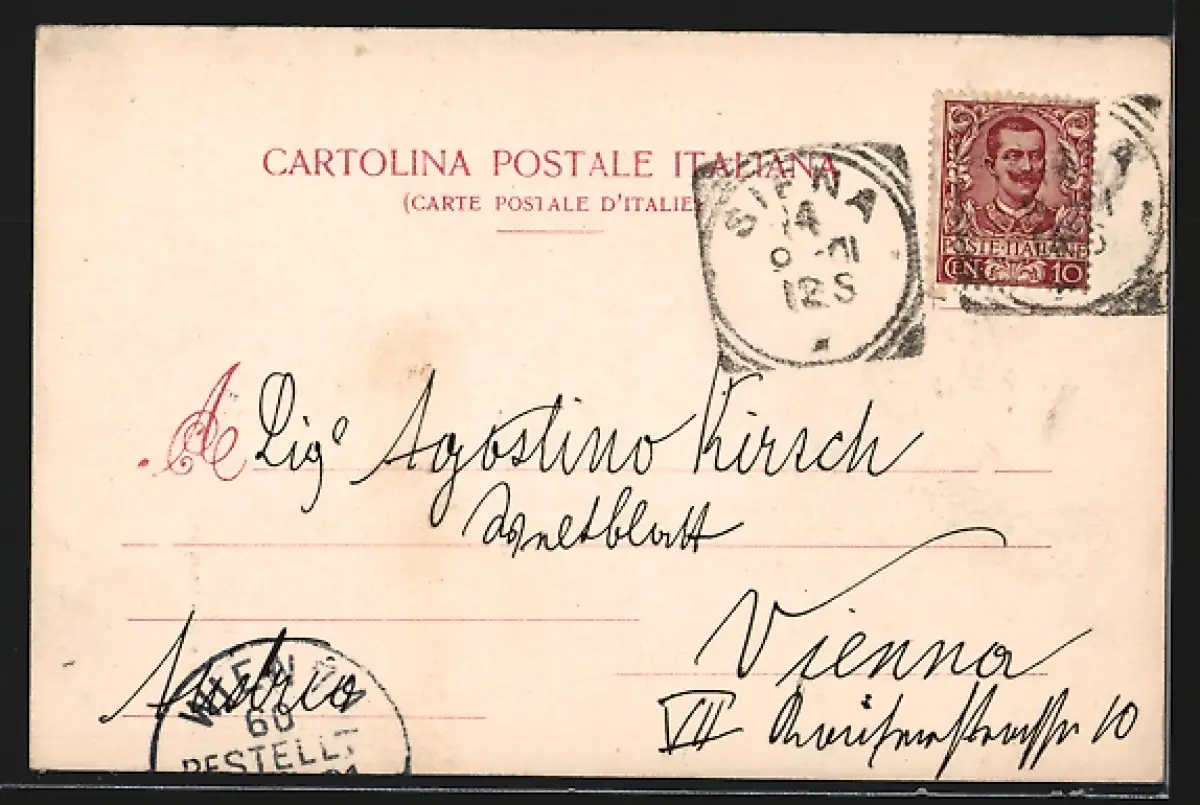 CARTOLINA POSTALE ITALIANA
(CARTE POSTALE D'ITALIE)
SIENA
14
9 - 01
12 S
POSTE·ITALIANE
CEN 10
A Sigº Agostino Kirsch
Weltblatt
Vienna
VII 10
Austria
WIEN
60
BESTELLT